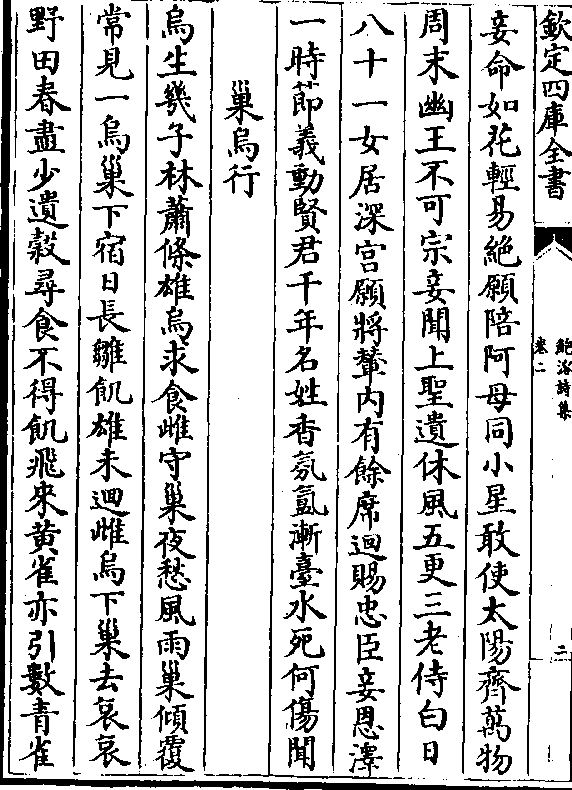 欽定四庫全書
鮑溶詩集
卷二
二
妾命如花輕易絶願陪阿母同小星敢使太陽齊萬物
周末幽王不可宗妾聞上聖遺休風五更三老侍白日
八十一女居深宫願將輦内有餘席迴賜忠臣妾恩澤
一時節義動賢君千年名姓香氛氲漸臺水死何傷聞
巢烏行
烏生幾子林蕭條雄烏求食雌守巢夜愁風雨巢傾覆
常見一烏巢下宿日長雛飢雄未迴雌烏下巢去哀哀
野田春盡少遺穀尋食不得飢飛來黄雀亦引數青雀